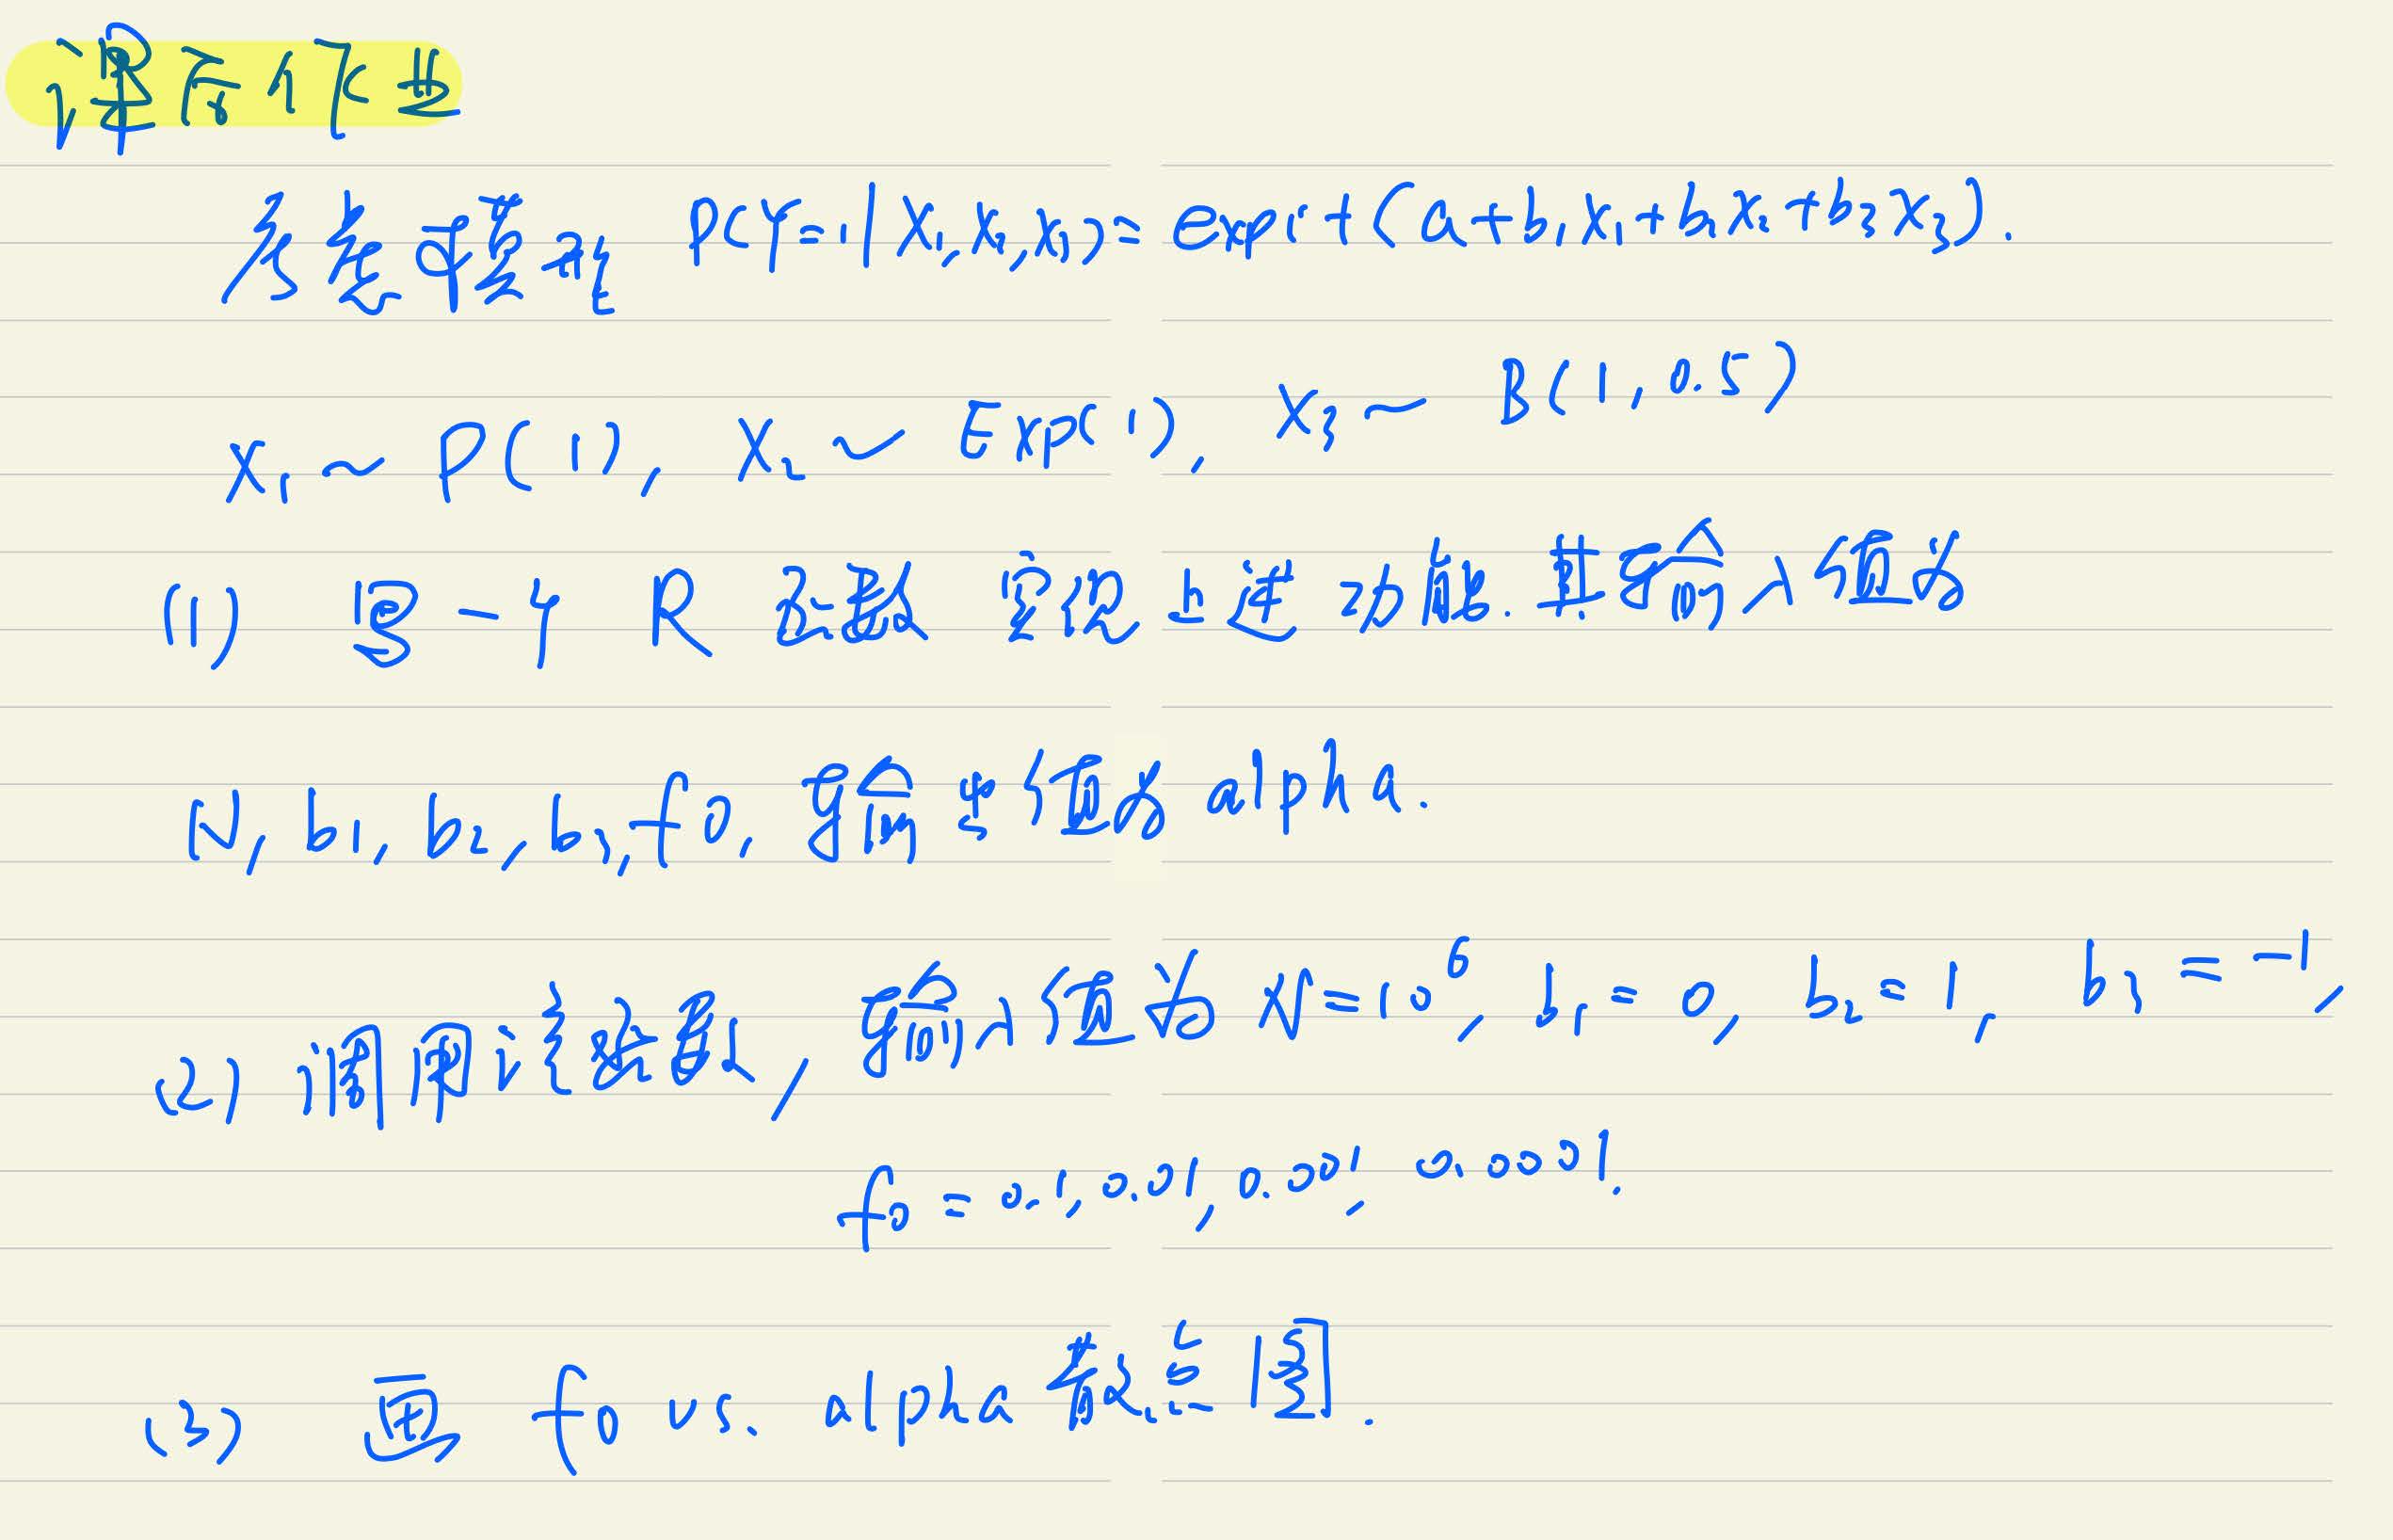 课后作业
考虑模型 P(Y=1|X₁,X₂,X₃)=expit(a+b₁X₁+b₂X₂+b₃X₃).
X₁~P(1), X₂~Exp(1), X₃~B(1,0.5)
(1) 写一个R函数实现上述功能.其需输入值为
N, b₁, b₂, b₃, f0, 需输出值为 alpha.
(2) 调用该函数, 需输入值为 N=10⁶, b₁=0, b₂=1, b₃=-1,
f0=0.1, 0.01, 0.001, 0.0001.
(3) 画 f0 vs. alpha 散点图.